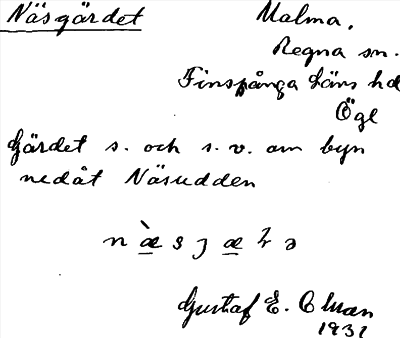 Näsgärdet
Malma,
Regna sn.
Finspånga läns hd
Ögl
Gärdet s. och s. v. om byn
nedåt Näsudden
Gustaf E.
1931